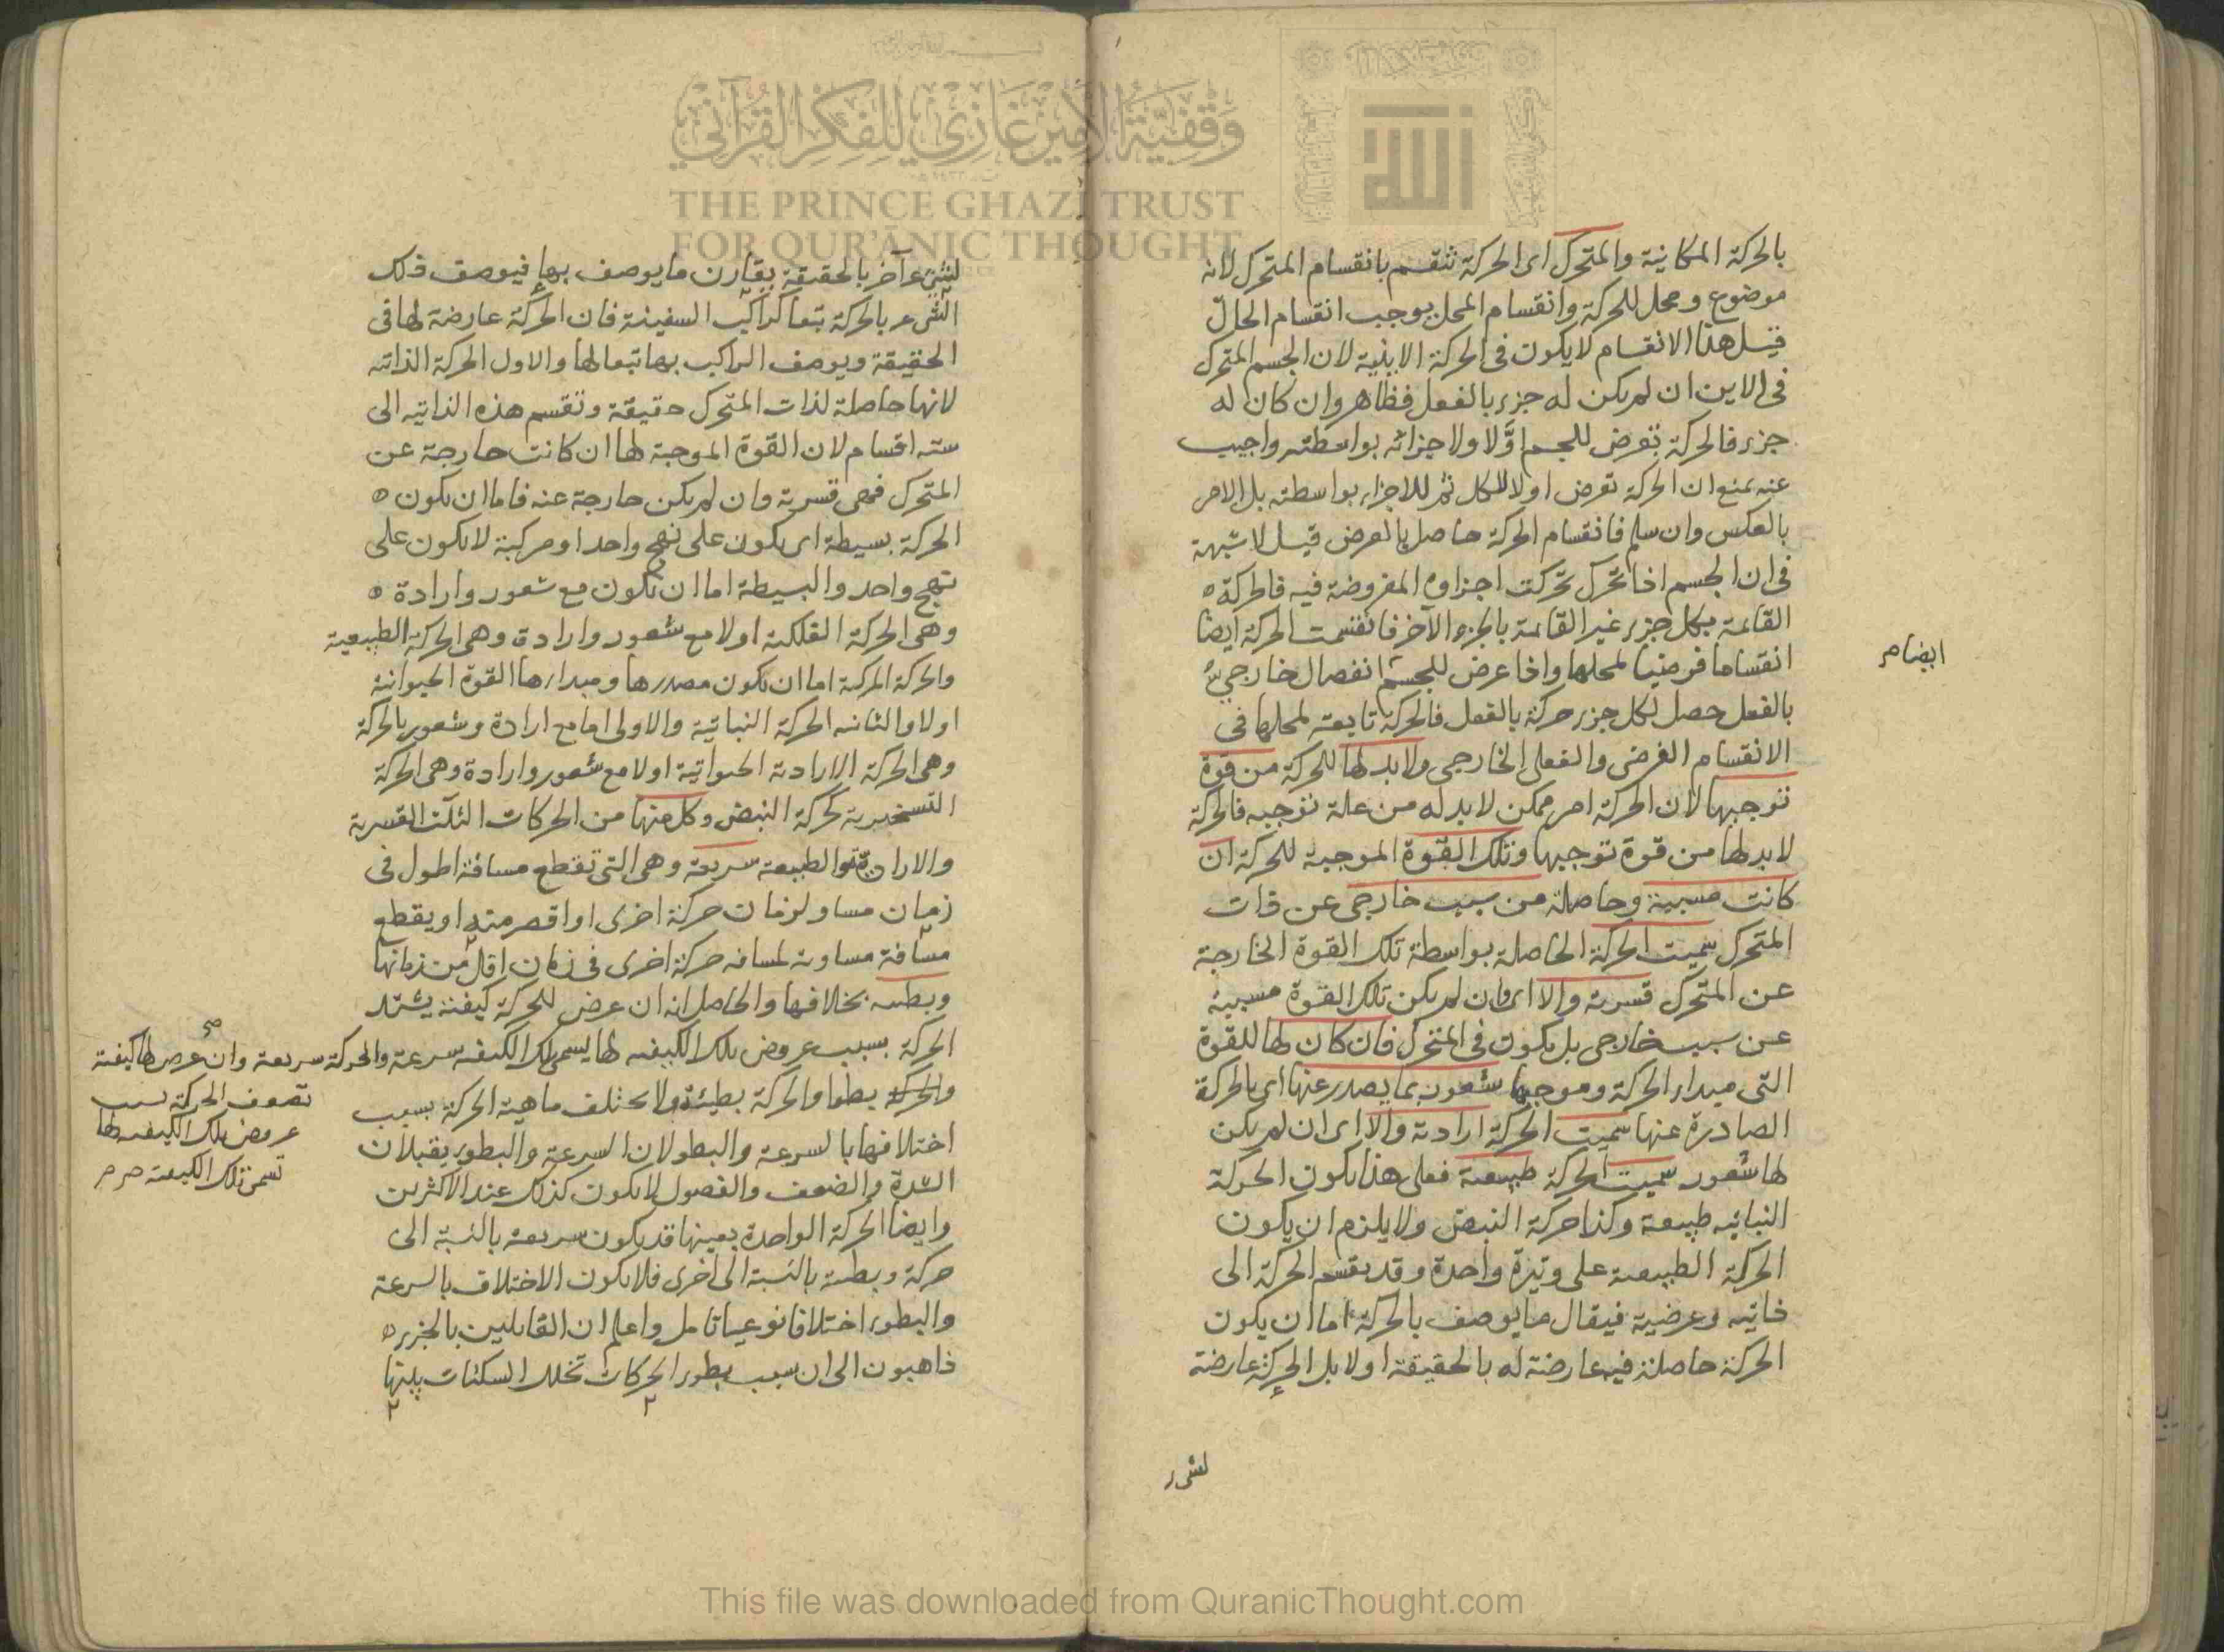 بالحركة المكانية والمتحرك اى الحركة تنقسم بانقسام المتحرك لانه
موضوع ومحل للحركة وانقسام المحل يوجب انقسام الحالّ
قيل هذا الانقسام لا يكون فى الحركة الاينية لان الجسم المتحرك
فى الاين ان لم يكن له جزء بالفعل فظاهر وان كان له
جزء فالحركة تعرض للجسم اوّلا ولاجزائه بواسطته واجيب
عنه بمنع ان الحركة تعرض اولا للكل ثم للاجزاء بواسطته بل الامر
بالعكس وان سلم فانقسام الحركة حاصل بالعرض قيل لا شبهة
فى ان الجسم اذا تحرك تحركت اجزاوه المفروضة فيه فالحركة ه
القائمة بكل جزء غير القائمة بالجزء الآخر فانقسمت الحركة ايضا
ايضا م
انقساما فرضيا لمحلها واذا عرض للجسم انفصال خارجي
بالفعل حصل لكل جزء حركة بالفعل فالحركة تابعة لمحلها فى
الانقسام الفرضى والفعلى الخارجى ولابد لها للحركة من قوة
توجبها لان الحركة امر ممكن لا بد له من علة توجبه فالحركة
لابد لها من قوة توجبها وتلك القوة الموجبة للحركة ان
كانت مسببة وحاصلة من سبب خارجى عن ذات
المتحرك سميت الحركة الحاصلة بواسطة تلك القوة الخارجة
عن المتحرك قسرية والا اى وان لم يكن تلك القوة مسببة
عن سبب خارجى بل يكون فى المتحرك فان كان لها للقوة
التى مبداء الحركة وموجبها شعور بما يصدر عنها اى بالحركة
الصادرة عنها سميت الحركة ارادية والا اى ان لم يكن
لها شعور سميت الحركة طبيعية فعلى هذا يكون الحركة
النباتيه طبيعية وكذا حركة النبض ولا يلزم ان يكون
الحركة الطبيعية على وتيرة واحدة وقد يقسم الحركة الى
ذاتيه وعرضية فيقال ما يوصف بالحركة اما ان يكون
الحركة حاصلة فيه عارضة له بالحقيقة اولا بل الحركة عارضة
لشىء
لشىء آخر بالحقيقة يقارن ما يوصف بها فيوصف ذلك
الشىء بالحركة تبعا كراكب السفينة فان الحركة عارضة لها فى
الحقيقة ويوصف الراكب بها تبعا لها والاول الحركة الذاتيه
لانها حاصلة لذات المتحرك حقيقة وتقسم هذه الذاتيه الى
سته اقسام لان القوة الموجبة لها ان كانت خارجة عن
المتحرك فهى قسرية وان لم يكن خارجة عنه فاما ان يكون ه
الحركة بسيطة اى يكون على نهج واحد او مركبة لا يكون على
نهج واحد والبسيطة اما ان تكون مع شعور وارادة ه
وهى الحركة الفلكية اولا مع شعور وارادة وهى الحركة الطبيعية
والحركة المركبة اما ان يكون مصدرها ومبداءها القوة الحيوانية
اولا والثانيه الحركة النباتية والاولى اما مع ارادة وشعور بالحركة
وهى الحركة الارادية الحيوانية اولا مع شعور وارادة وهى الحركة
التسخيرية كحركة النبض وكل منها من الحركات الثلث القسرية
والارادية والطبيعية سريعة وهى التى تقطع مسافة اطول فى
زمان مساو لزمان حركة اخرى او اقصر منه او يقطع
مسافة مساوية لمسافه حركة اخرى فى زمان اقل من زمانها
وبطيئه بخلافها والحاصل انه ان عرض للحركة كيفية يشتد
الحركة بسبب عروض تلك الكيفيه لها يسمى تلك الكيفيه سرعة والحركة سريعة وان عرض لها كيفية
تضعف الحركة بسبب
عروض تلك الكيفيه لها
تسمى تلك الكيفية صح
والحركة بطؤا والحركة بطيئة ولا يختلف ماهية الحركة بسبب
اختلافها بالسرعة والبطو لان السرعة والبطوء يقبلان
الشدة والضعف والفصول لا يكون كذلك عند الاكثرين
وايضا الحركة الواحدة بعينها قد يكون سريعة بالنسبة الى
حركة وبطيئة بالنسبة الى اخرى فلا يكون الاختلاف بالسرعة
والبطوء اختلافا نوعيا تامل واعلم ان القايلين بالجزء ه
ذاهبون الى ان سبب بطوء الحركات تخلل السكنات بينها